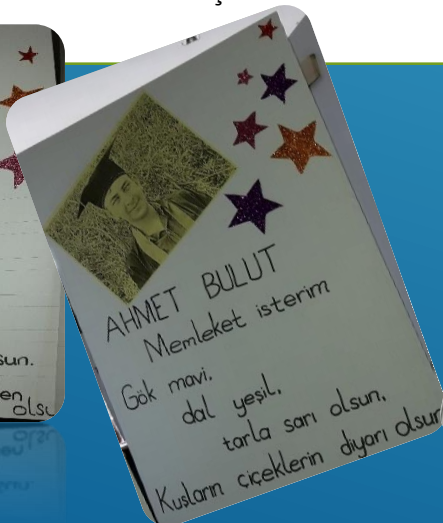 sun.
en
olsu
AHMET BULUT
Memleket isterim
Gök mavi,
dal yeşil,
tarla sarı olsun,
Kuşların çiçeklerin diyarı olsun